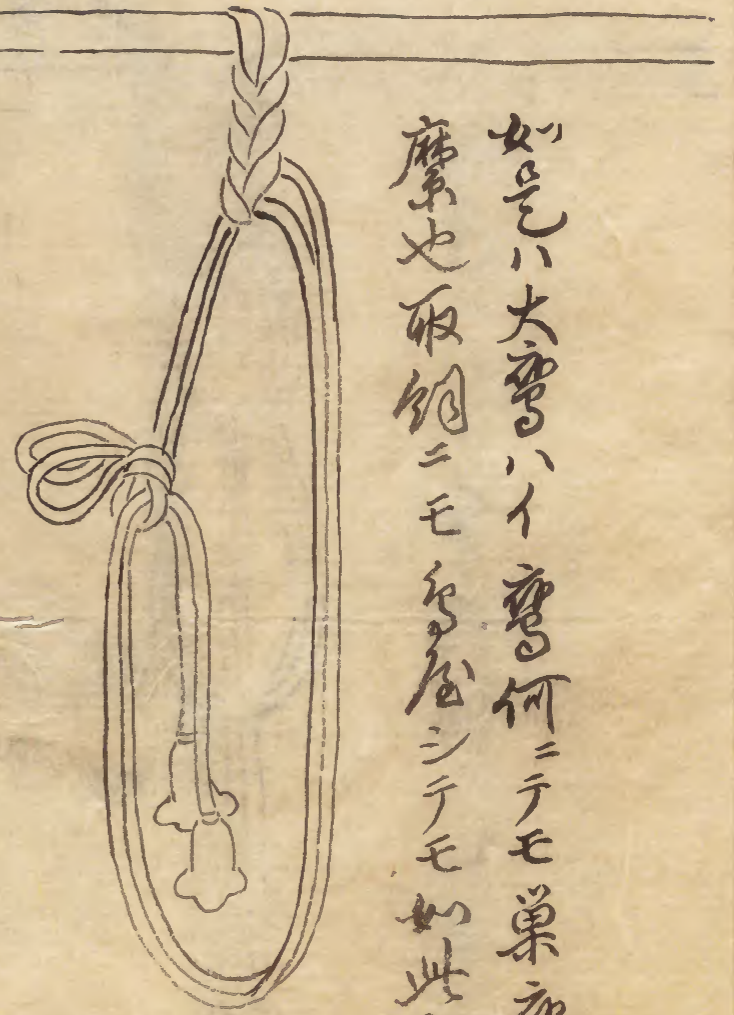 如是ハ大鷹ハイ鷹何ニテモ巣
縻也取飼ニモ鳥屋シテモ如此